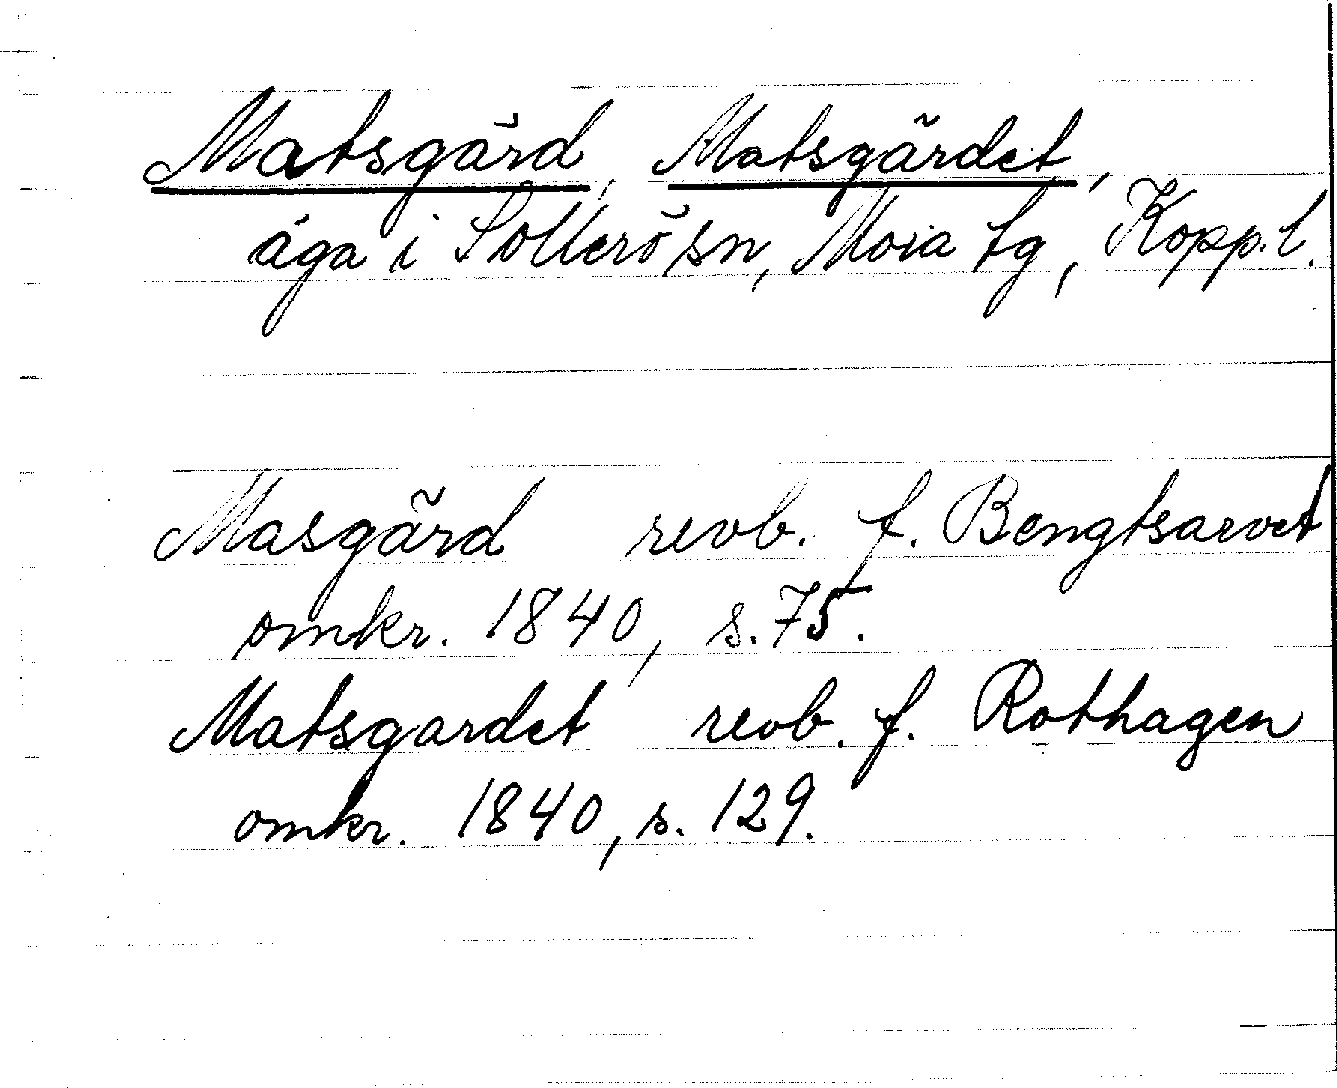 Matsgärd, Matsgärdet,
äga i Sollerö sn, Mora tg, Kopp.l.
Masgärd revb. f. Bengtsarvet
omkr. 1840, s. 75.
Matsgardet revb. f. Rothagen
omkr. 1840, s. 129.